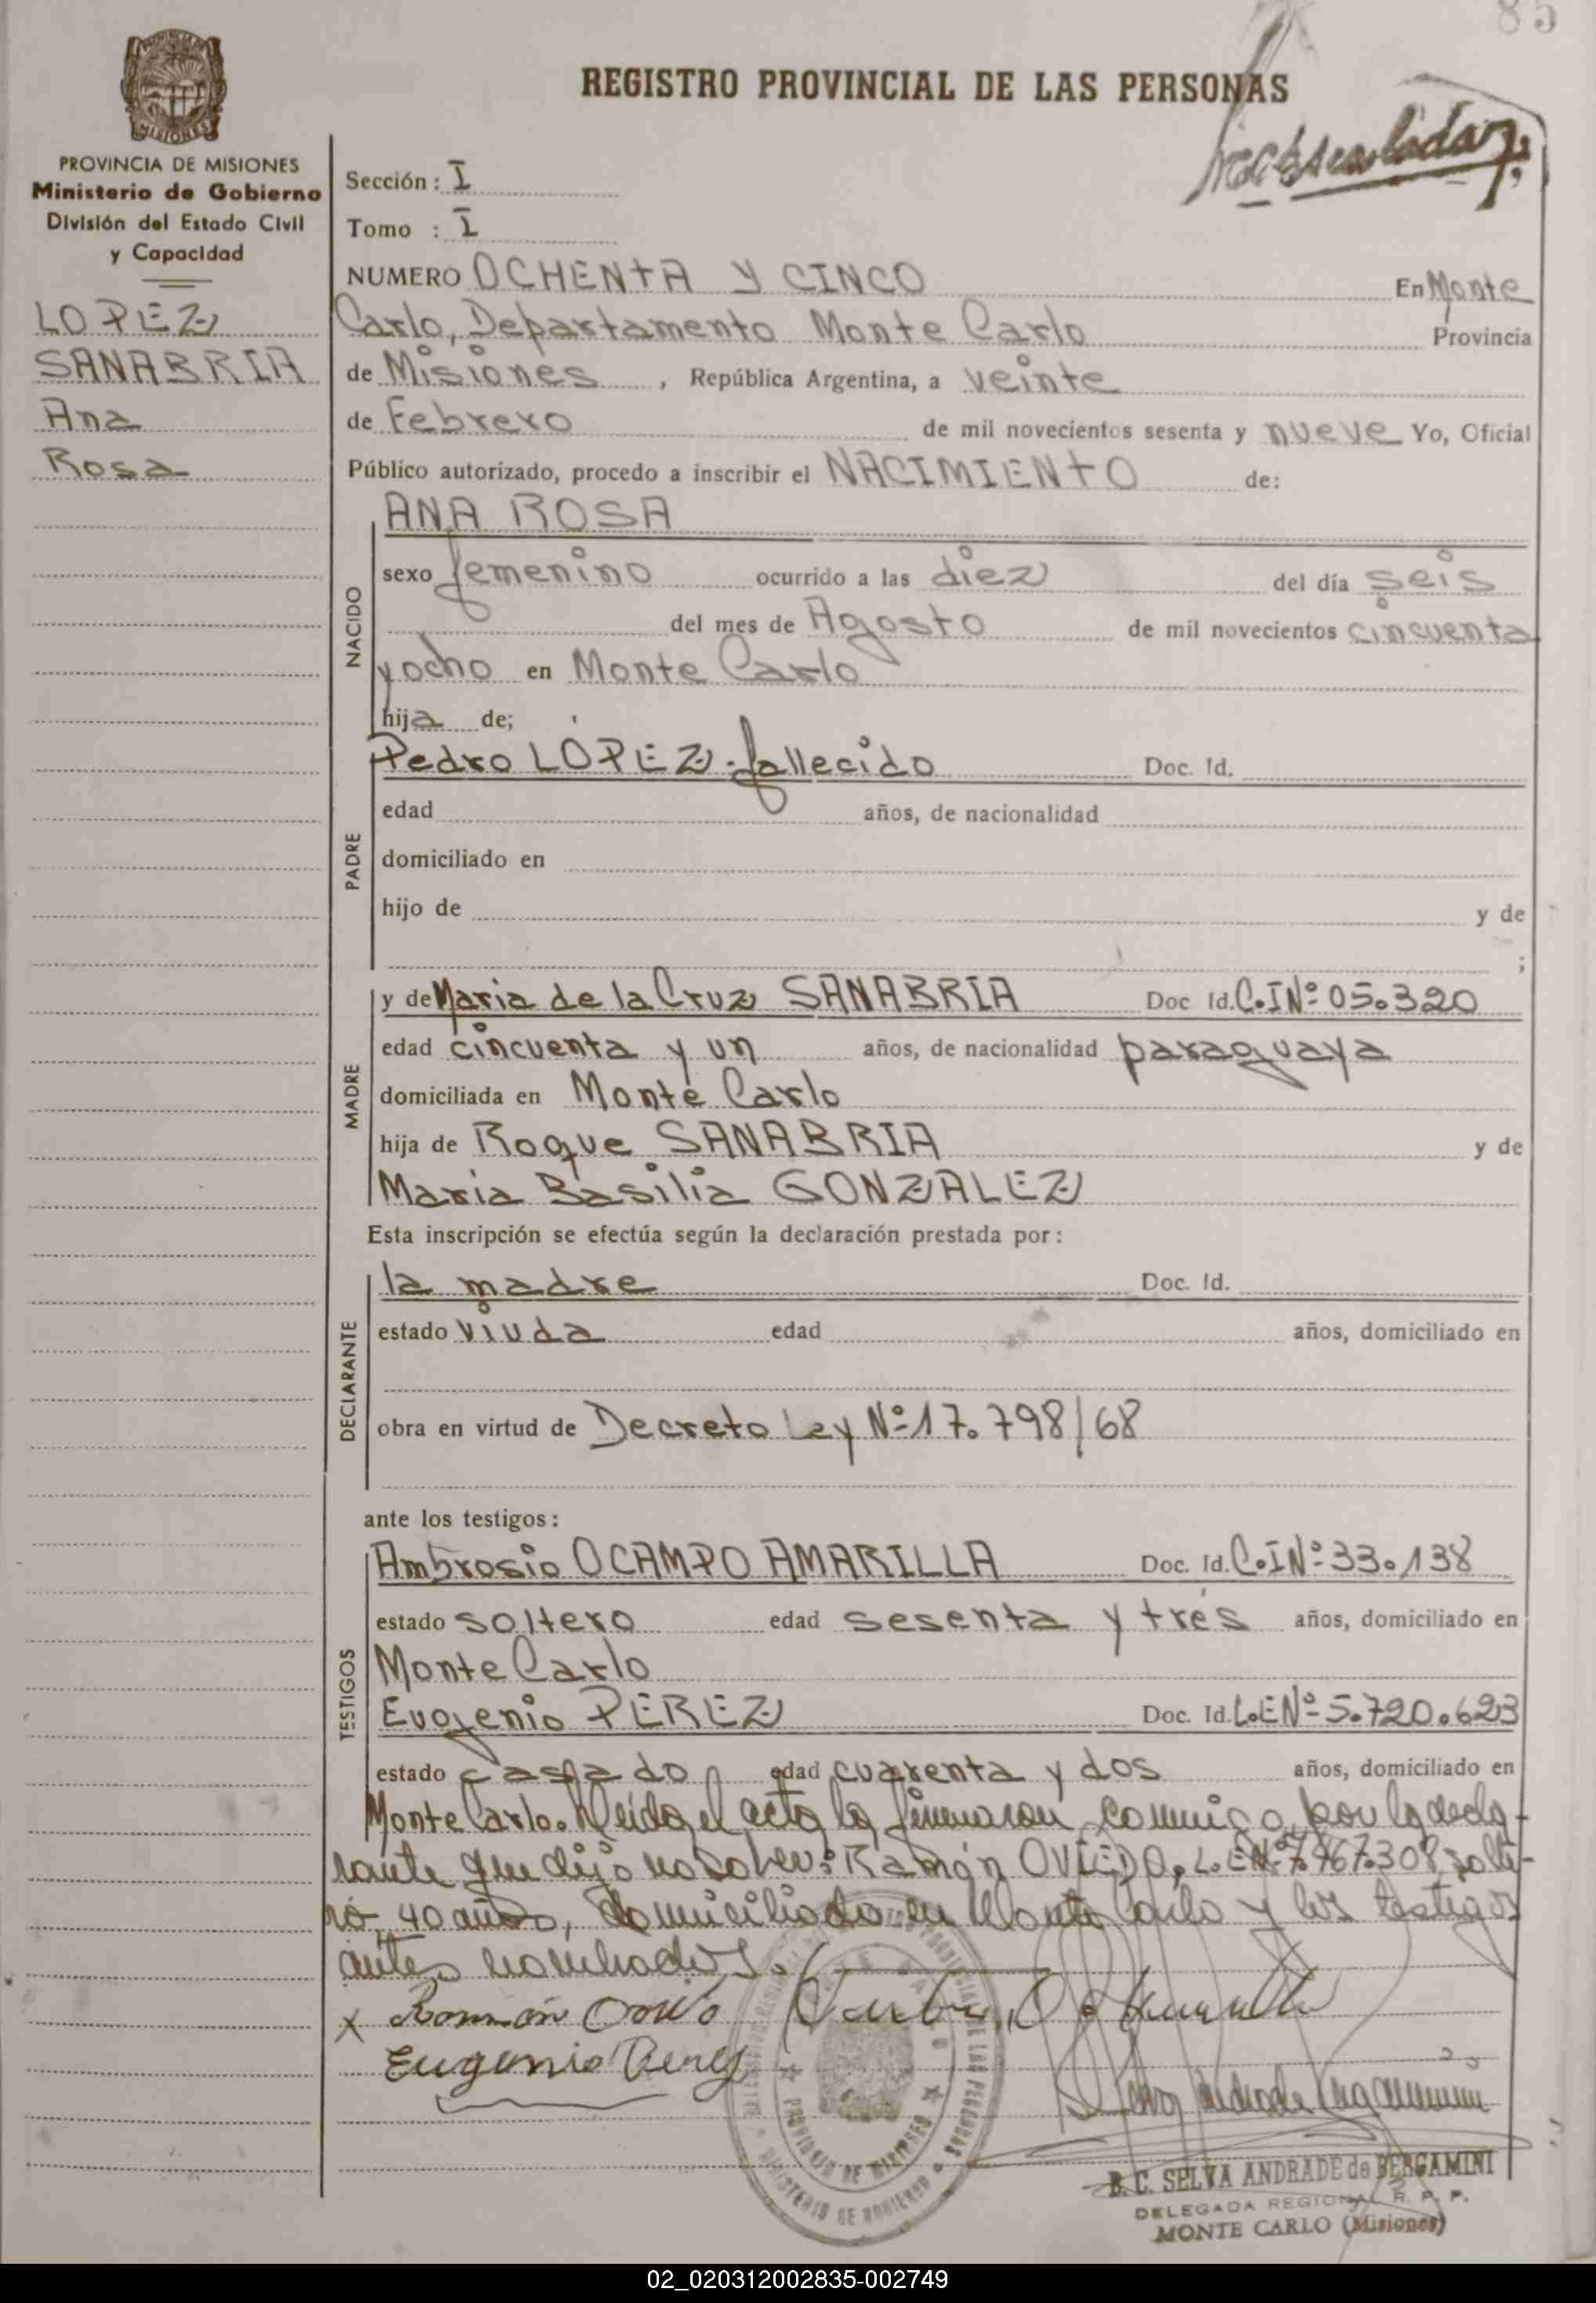 85
REGISTRO PROVINCIAL DE LAS PERSONAS
MISIONES
PROVINCIA DE MISIONES
Ministerio de Gobierno
División del Estado Civil
y Capacidad
LOPEZ
SANABRIA
Ana
Rosa
Sección: I
Tomo : I
NUMERO OCHENTA Y CINCO En Monte
Carlo, Departamento Monte Carlo Provincia
de Misiones, República Argentina, a veinte
de Febrero de mil novecientos sesenta y nueve Yo, Oficial
Público autorizado, procedo a inscribir el NACIMIENTO de:
ANA ROSA
NACIDO
sexo femenino ocurrido a las diez del día seis
del mes de Agosto de mil novecientos cincuenta
y ocho en Monte Carlo
hija de;
PADRE
Pedro LÓPEZ. fallecido Doc. Id.
edad años, de nacionalidad
domiciliado en
hijo de y de
;
MADRE
y de Maria de la Cruz SANABRIA Doc Id. C.I Nº 05.320
edad cincuenta y un años, de nacionalidad paraguaya
domiciliada en Monte Carlo
hija de Roque SANABRIA y de
Maria Basilia GONZALEZ
Esta inscripción se efectúa según la declaración prestada por:
DECLARANTE
la madre Doc. Id.
estado viuda edad años, domiciliado en
obra en virtud de Decreto Ley Nº 17.798/68
ante los testigos:
TESTIGOS
Ambrosio OCAMPO AMARILLA Doc. Id. C.I Nº 33.138
estado soltero edad sesenta y tres años, domiciliado en
Monte Carlo
Eugenio PEREZ Doc. Id. L.E Nº 5.720.623
estado casado edad cuarenta y dos años, domiciliado en
Monte Carlo. Leída el acta la firmaron conmigo, por la decla-
rante que dijo no saber: Ramón OVIEDO, L.E Nº 7.467.308, solte-
ro, 40 años, domiciliado en Monte Carlo y los testigos
antes nombrados.
x Ramón
Eugenio Perez
PROVINCIA DE MISIONES
MINISTERIO DE GOBIERNO
B. C. SELVA ANDRADE de BERGAMINI
DELEGADA REGIONAL R. P. P.
MONTE CARLO (Misiones)
02_020312002835-002749